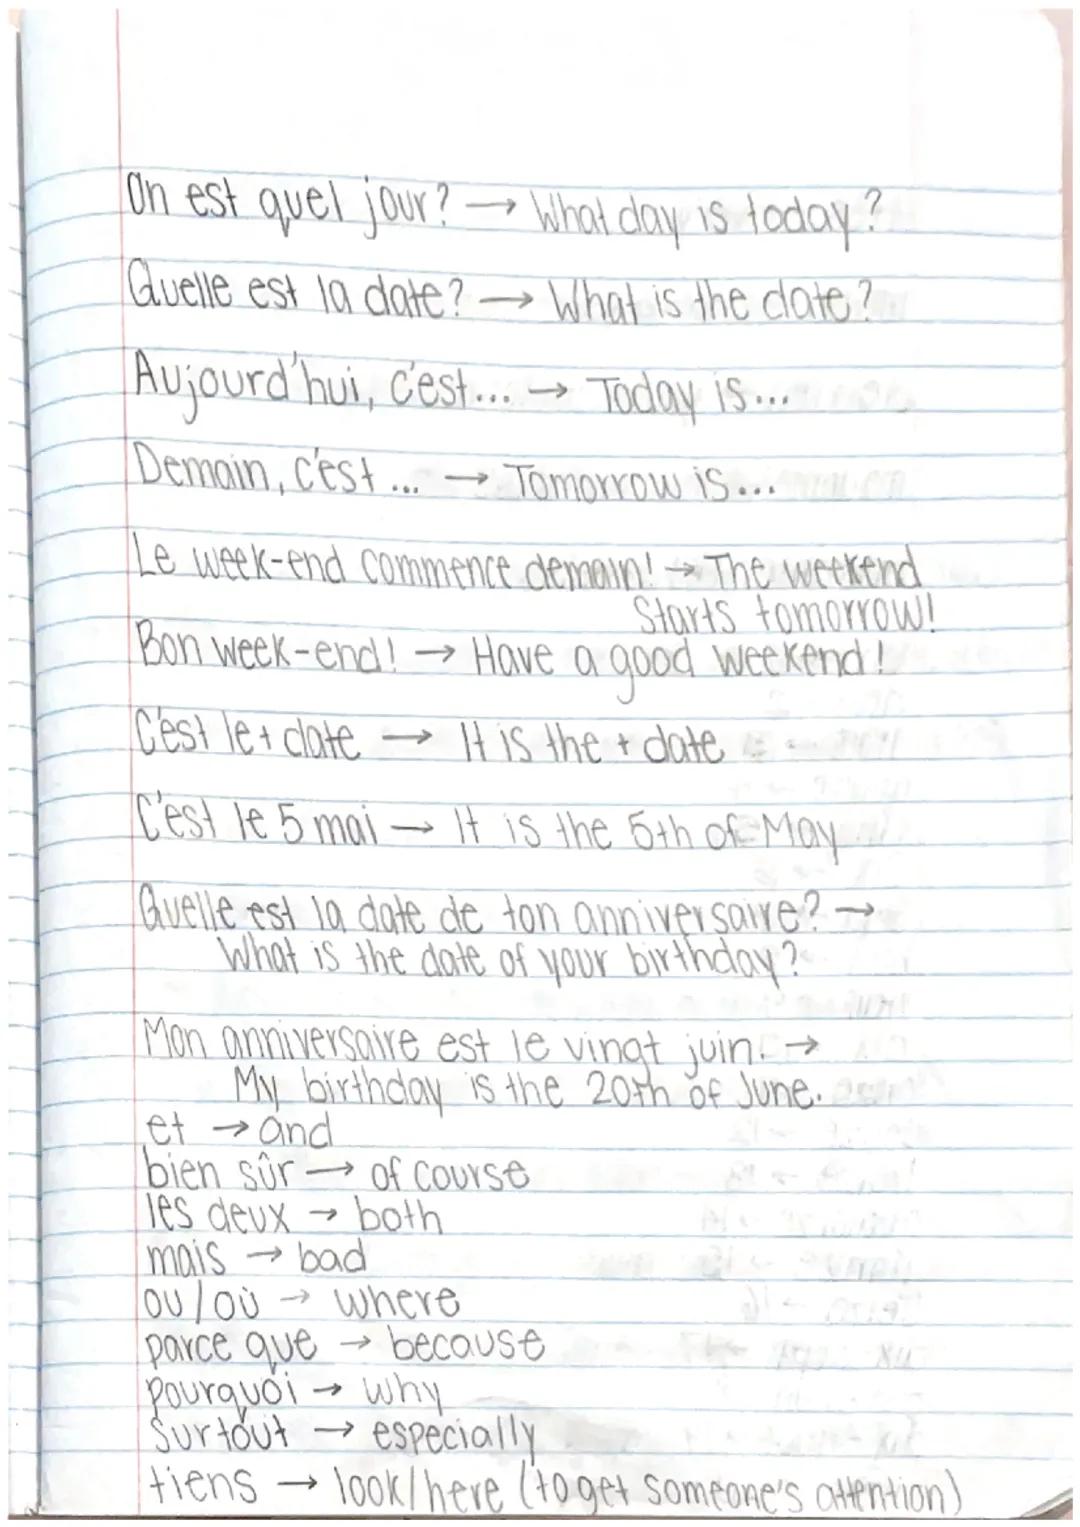 On est quel jour? → What day is today?
Quelle est la date? → What is the date?
Aujourd'hui, c'est... → Today is...
Demain, c'est ... → Tomorrow is...
Le week-end commence demain! → The weekend
Starts tomorrow!
Bon week-end! → Have a good weekend!
C'est le + date → It is the + date
C'est le 5 mai → It is the 5th of May
Quelle est la date de ton anniversaire? →
What is the date of your birthday?
Mon anniversaire est le vingt juin. →
My birthday is the 20th of June.
et → and
bien sûr → of course
les deux → both
mais → bad
ou/où → where
parce que → because
pourquoi → why
surtout → especially
tiens → look/here (to get someone's attention)